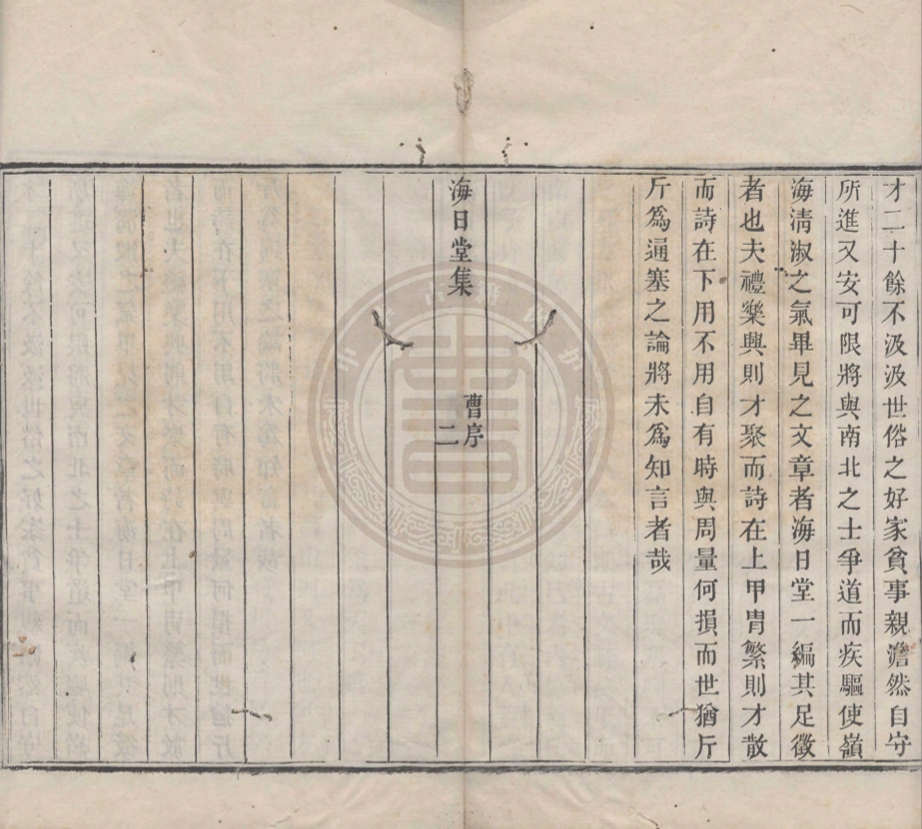 才二十餘不汲汲世俗之好家貧事親澹然自守
所進又安可限將與南北之士爭道而疾驅使嶺
海淸淑之氣畢見之文章者海日堂一編其足徵
者也夫禮樂興則才聚而詩在上甲冑繁則才散
而詩在下用不用自有時與周量何損而世猶斤
斤爲通塞之論將未爲知言者哉
海日堂集
曹序
二